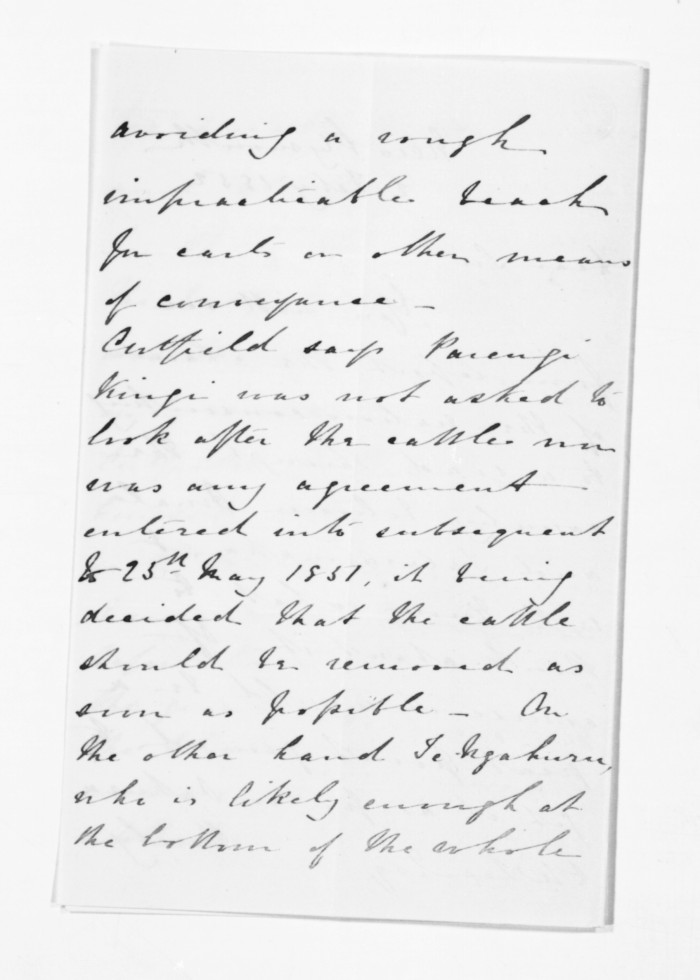 avoiding a rough
impracticable beach
for carts or other means
of conveyance –
Cutfield says Parengi
Kingi was not asked to
look after the cattle nor
was any agreement
entered into subsequent
to 25th May 1851, it being
decided that the cattle
should be removed as
soon as possible – On
the other hand Te Ngahuru,
who is likely enough at
the bottom of the whole